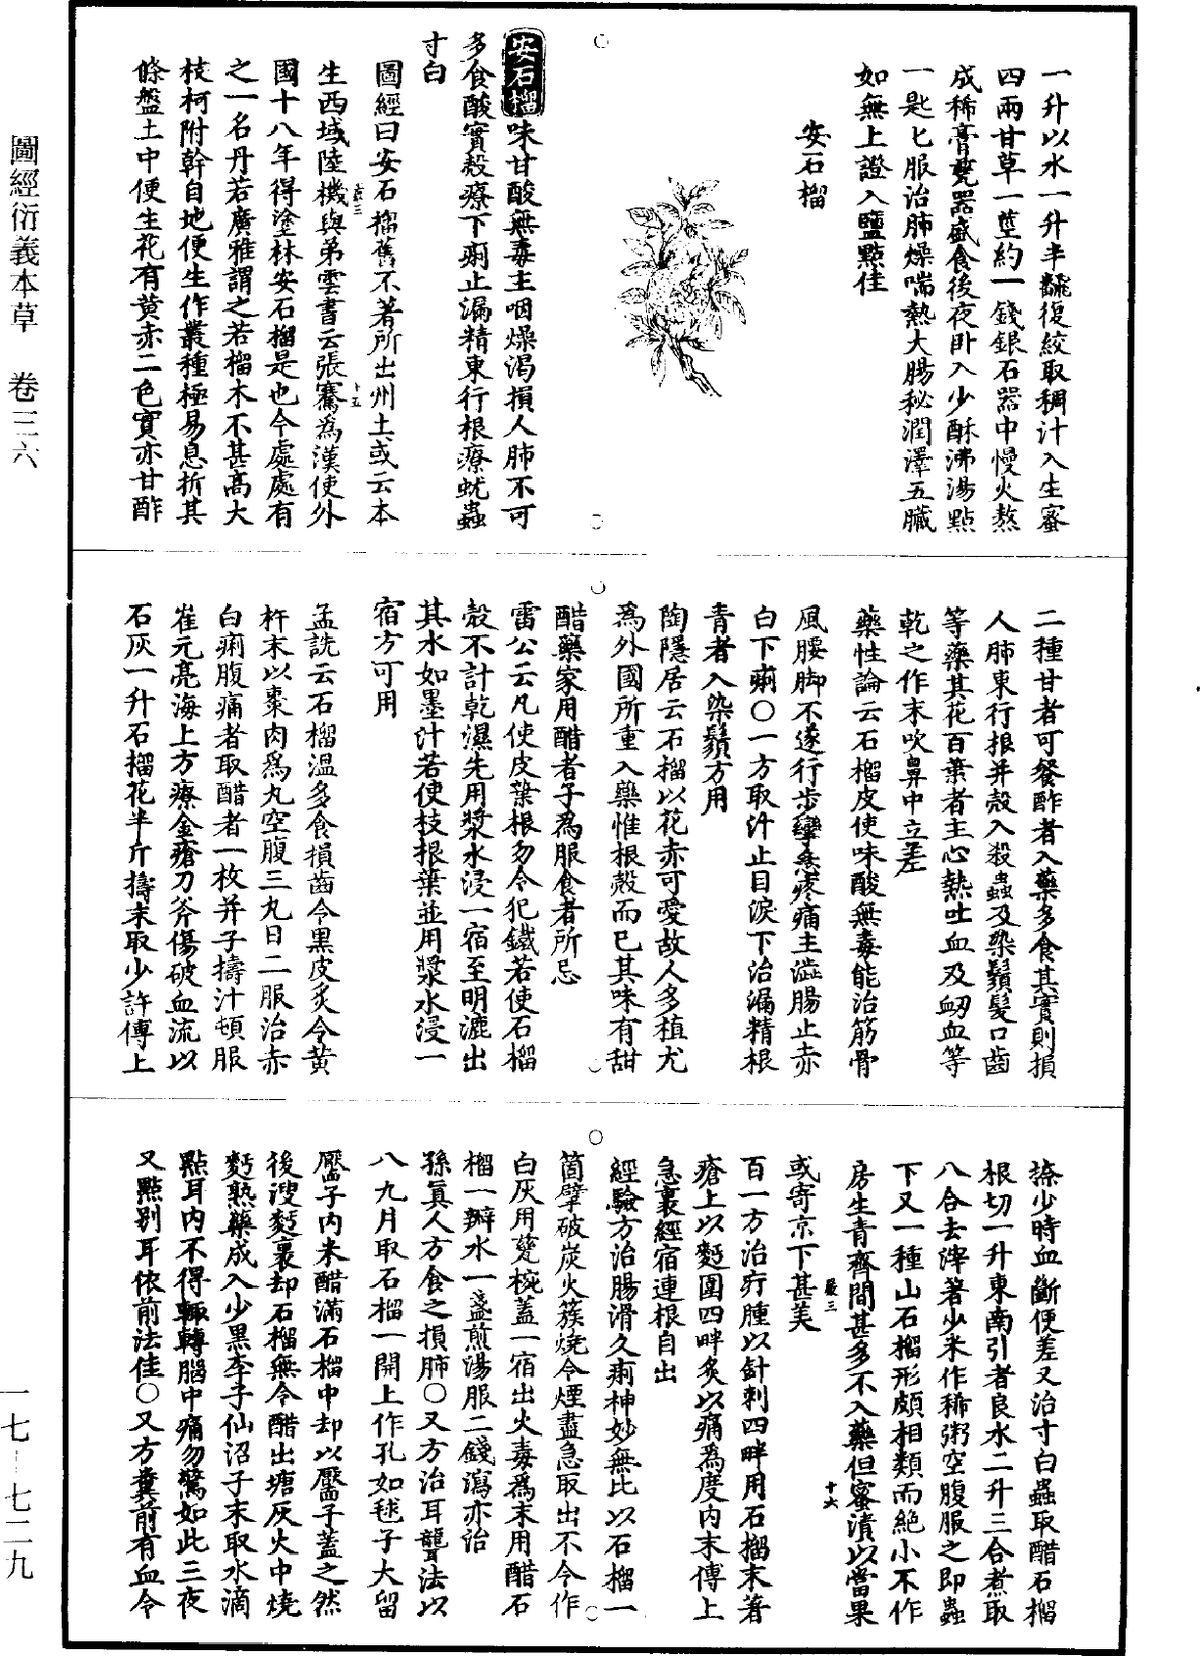 圖經衍義本草　卷三六
一升以水一升半飜復絞取稠汁入生蜜
四兩甘草一莖約一錢銀石器中慢火熬
成稀膏甆器盛食後夜臥入少酥沸湯點
一匙匕服治肺燥喘熱大腸秘潤澤五臟
如無上證入鹽點佳
安石榴
安石榴味甘酸無毒主咽燥渴損人肺不可
多食酸實殻療下痢止漏精東行根療蚘蟲
寸白
圖經曰安石榴舊不著所出州土或云本
生西域陸機與弟雲書云張騫爲漢使外
國十八年得塗林安石榴是也今處處有
之一名丹若廣雅謂之若榴木不甚高大
枝柯附幹自地便生作叢種極易息折其
條盤土中便生花有黄赤二色實亦甘酢
二種甘者可餐酢者入藥多食其實則損
人肺東行根并殻入殺蟲及染鬚髮口齒
等藥其花百葉者主心熱吐血及衂血等
乾之作末吹鼻中立差
藥性論云石榴皮使味酸無毒能治筋骨
風腰脚不遂行步攣急疼痛主澁腸止赤
白下痢〇一方取汁止目淚下治漏精根
青者入染鬚方用
陶隱居云石榴以花赤可愛故人多植尤
爲外國所重入藥惟根殻而已其味有甜
醋藥家用醋者子爲服食者所忌
雷公云凡使皮葉根勿令犯鐵若使石榴
殻不計乾濕先用漿水浸一宿至明漉出
其水如墨汁若使枝根葉並用漿水浸一
宿方可用
孟詵云石榴溫多食損齒令黑皮炙令黄
杵末以棗肉爲丸空腹三丸日二服治赤
白痢腹痛者取醋者一枚并子擣汁頓服
崔元亮海上方療金瘡刀斧傷破血流以
石灰一升石榴花半斤擣末取少許傅上
捺少時血斷便差又治寸白蟲取醋石榴
根切一升東南引者良水二升三合煮取
八合去滓著少米作稀粥空腹服之即蟲
下又一種山石榴形頗相類而絶小不作
房生青齊間甚多不入藥但蜜漬以當果
或寄京下甚美
百一方治疔腫以針刺四畔用石榴末著
瘡上以麪圍四畔炙以痛爲度内末傅上
急裹經宿連根自出
經驗方治腸滑久痢神妙無比以石榴一
箇擘破炭火簇燒令煙盡急取出不令作
白灰用甆椀蓋一宿出火毒爲末用醋石
榴一瓣水一盞煎湯服二錢瀉亦治
孫眞人方食之損肺〇又方治耳聾法以
八九月取石榴一開上作孔如毬子大留
靨子内米醋滿石榴中却以靨子蓋之然
後溲麪裹却石榴無令醋出塘灰火中燒
麪熟藥成入少黒李子仙沼子末取水滴
點耳内不得輒轉腦中痛勿驚如此三夜
又點别耳依前法佳〇又方糞前有血令
一七－七二九